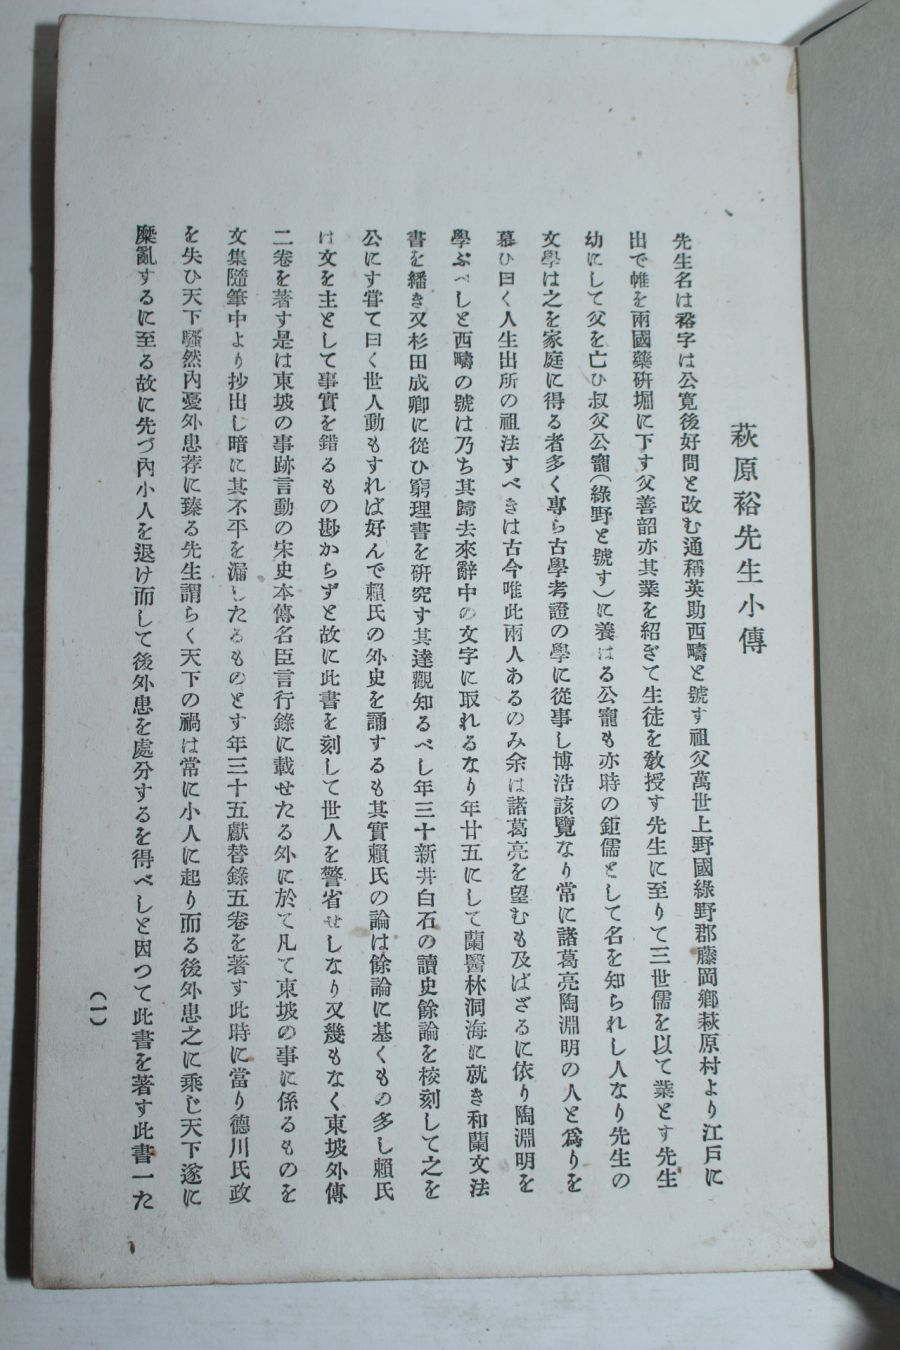 萩原裕先生小傳
先生名は裕字は公寛後好問と改む通稱英助西疇と號す祖父萬世上野國綠野郡藤岡鄕萩原村より江戸に
出で帷を兩國藥硏堀に下す父善韶亦其業を紹ぎて生徒を敎授す先生に至りて三世儒を以て業とす先生
幼にして父を亡ひ叔父公寵(綠野と號す)に養はる公寵も亦時の鉅儒として名を知られし人なり先生の
文學は之を家庭に得る者多く專ら古學考證の學に從事し博浩該覽なり常に諸葛亮陶淵明の人と爲りを
慕ひ曰く人生出所の祖法すべきは古今唯此兩人あるのみ余は諸葛亮を望むも及ばざるに依り陶淵明を
學ぶべしと西疇の號は乃ち其歸去來辭中の文字に取れるなり年廿五にして蘭醫林洞海に就き和蘭文法
書を繙き又杉田成卿に從ひ窮理書を硏究す其達觀知るべし年三十新井白石の讀史餘論を校刻して之を
公にす嘗て曰く世人動もすれば好んで賴氏の外史を誦するも其實賴氏の論は餘論に基くもの多し賴氏
は文を主として事實を錯るもの尠からずと故に此書を刻して世人を警省せしなり又幾もなく東坡外傳
二卷を著す是は東坡の事跡言動の宋史本傳名臣言行錄に載せたる外に於て凡て東坡の事に係るものを
文集隨筆中より抄出し暗に其不平を漏したるものとす年三十五獻替錄五卷を著す此時に當り德川氏政
を失ひ天下騷然內憂外患荐に臻る先生謂らく天下の禍は常に小人に起り而る後外患之に乘じ天下遂に
糜亂するに至る故に先づ內小人を退け而して後外患を處分するを得べしと因つて此書を著す此書一た
(一)